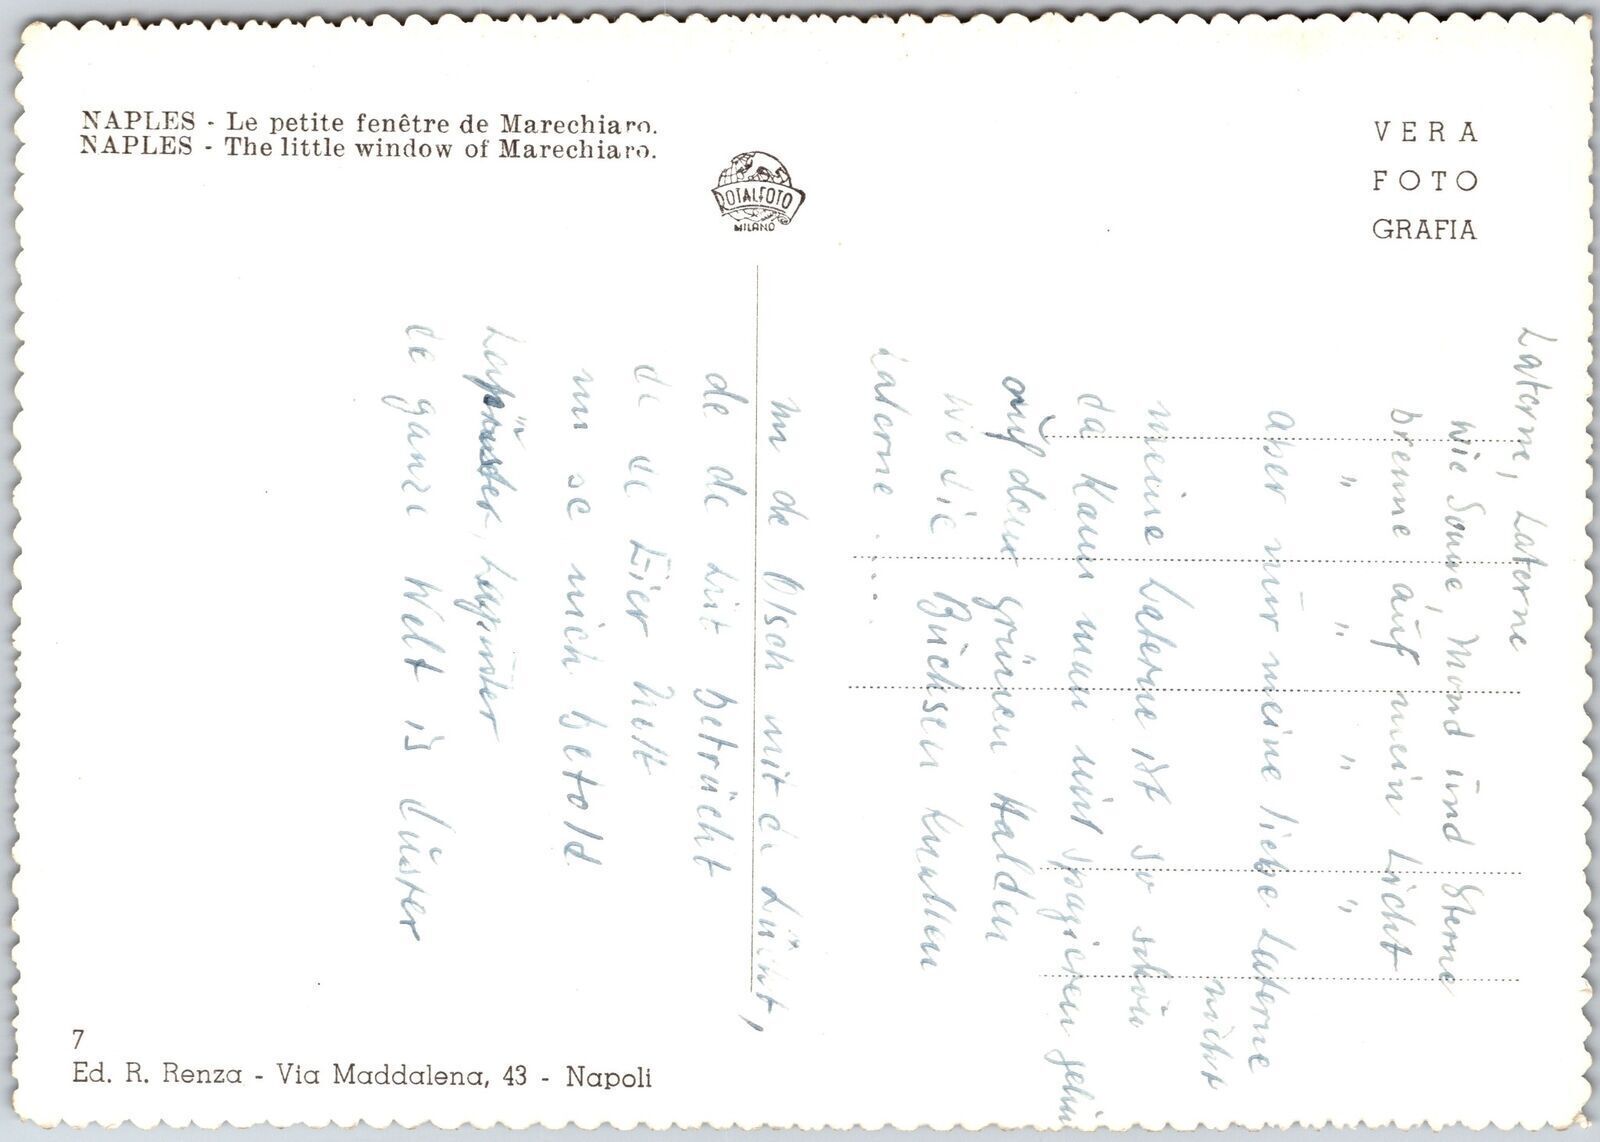 NAPLES - Le petite fenêtre de Marechiaro.
NAPLES - The little window of Marechiaro.
ROTALFOTO
MILANO
VERA
FOTO
GRAFIA
Laterne, Laterne
wie Sonne, Mond und Sterne
brenne auf mein Licht
" " " "
aber nur meine liebe Laterne
nicht
meine Laterne ist so schön
da kann man mit spazieren gehn
auf dem grünen Halden
wo die Büchsen knallen
Laterne ....
un de Olsch mit de Lücht,
de de Lüt betrücht
de de Eier holt
un se nich betold.
de ganze Welt is düster
7
Ed. R. Renza - Via Maddalena, 43 - Napoli